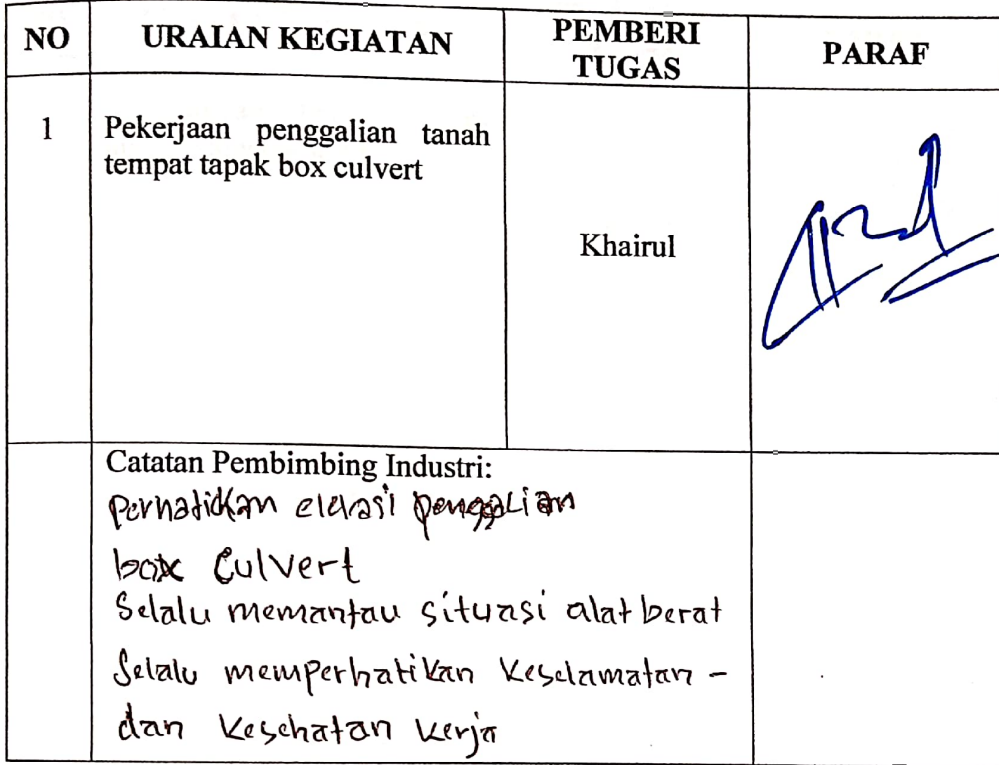 NO URAIAN KEGIATAN PEMBERI TUGAS PARAF
1 Pekerjaan penggalian tanah
tempat tapak box culvert
Khairul
Catatan Pembimbing Industri:
Perhatikan elevasi penggalian
box Culvert
Selalu memantau situasi alat berat
Selalu memperhatikan Keselamatan -
dan Kesehatan Kerja